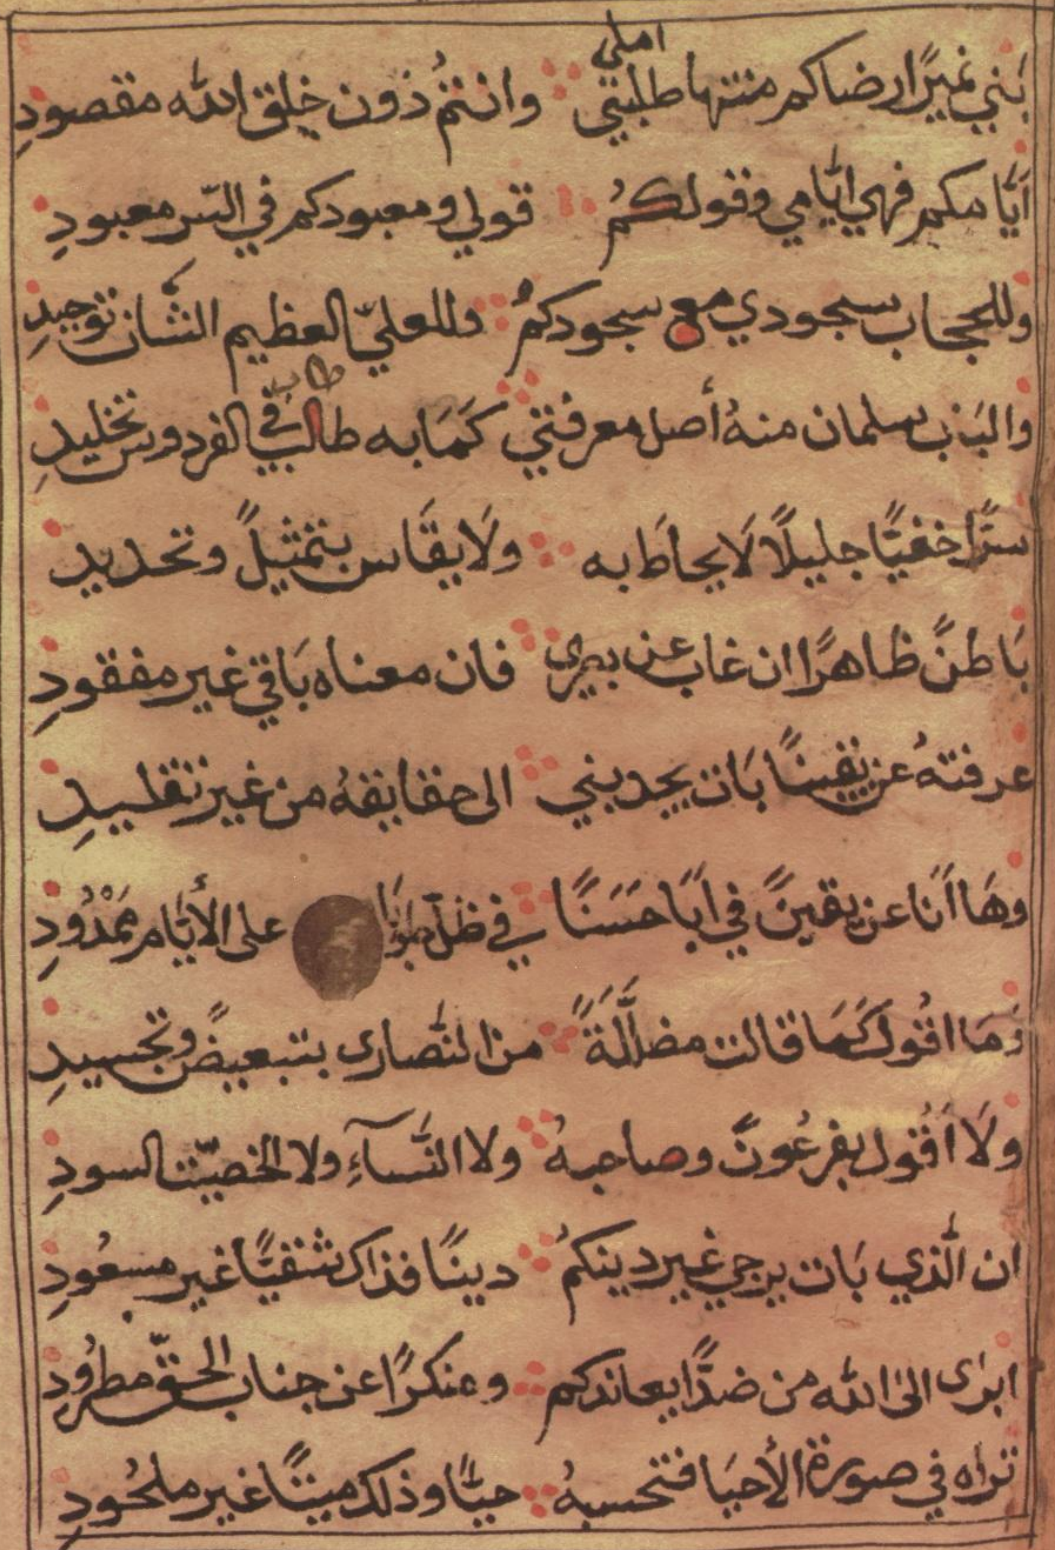 املي
بني نميرًا رضاكم منتها طلبتي وانتمُ ذون خلق الله مقصودِ
أيَّامكم فهي ايَّامي وقولكمُ قولي ومعبودكم في السّر معبودِ
وللحجاب سجودي مع سجودكمُ وللعليّ العظيم الشَّان توحيدِ
طاب
والباب سلمان منهُ أصل معرفتي كَمَا به طالب في الفردوس تخليدِ
سرًّا خفيًّا جليلًا لَا يحاطَ به ولَا يقَاس بتمثيلً وتحديدِ
بَاطنً ظاهرًا ان غاب عن بصري فان معناه بَاقي غير مفقودِ
عرفتهُ عن يقينًا بَات يجدبني الى حقايقهُ من غير تقليدِ
وهَا اَنَا عن يقينً في اَبَا حَسَنًا في ظل طوبَا على الأيَّام مَمْدُودِ
وَمَا اقُول كَمَا قالت مضلَّلَةً من النَّصارى بتبعيضً وتجسيدِ
ولَا اَقُول بفرعُونً وصاحبهُ ولا النَّسآءِ ولا الخصيّت السودِ
ان الَّذي بَات يرجي غير دينكمُ دينًا فذاك شقيًّا غير مسعُودِ
ابرٰى الىٰ الله من ضدًّا يعاندكم ومنكرًا عن جناب الحقّ مطرُودِ
تراه في صورة الأحيَا فتحسبهُ حيًّا وذلك ميتًا غير ملحُودِ